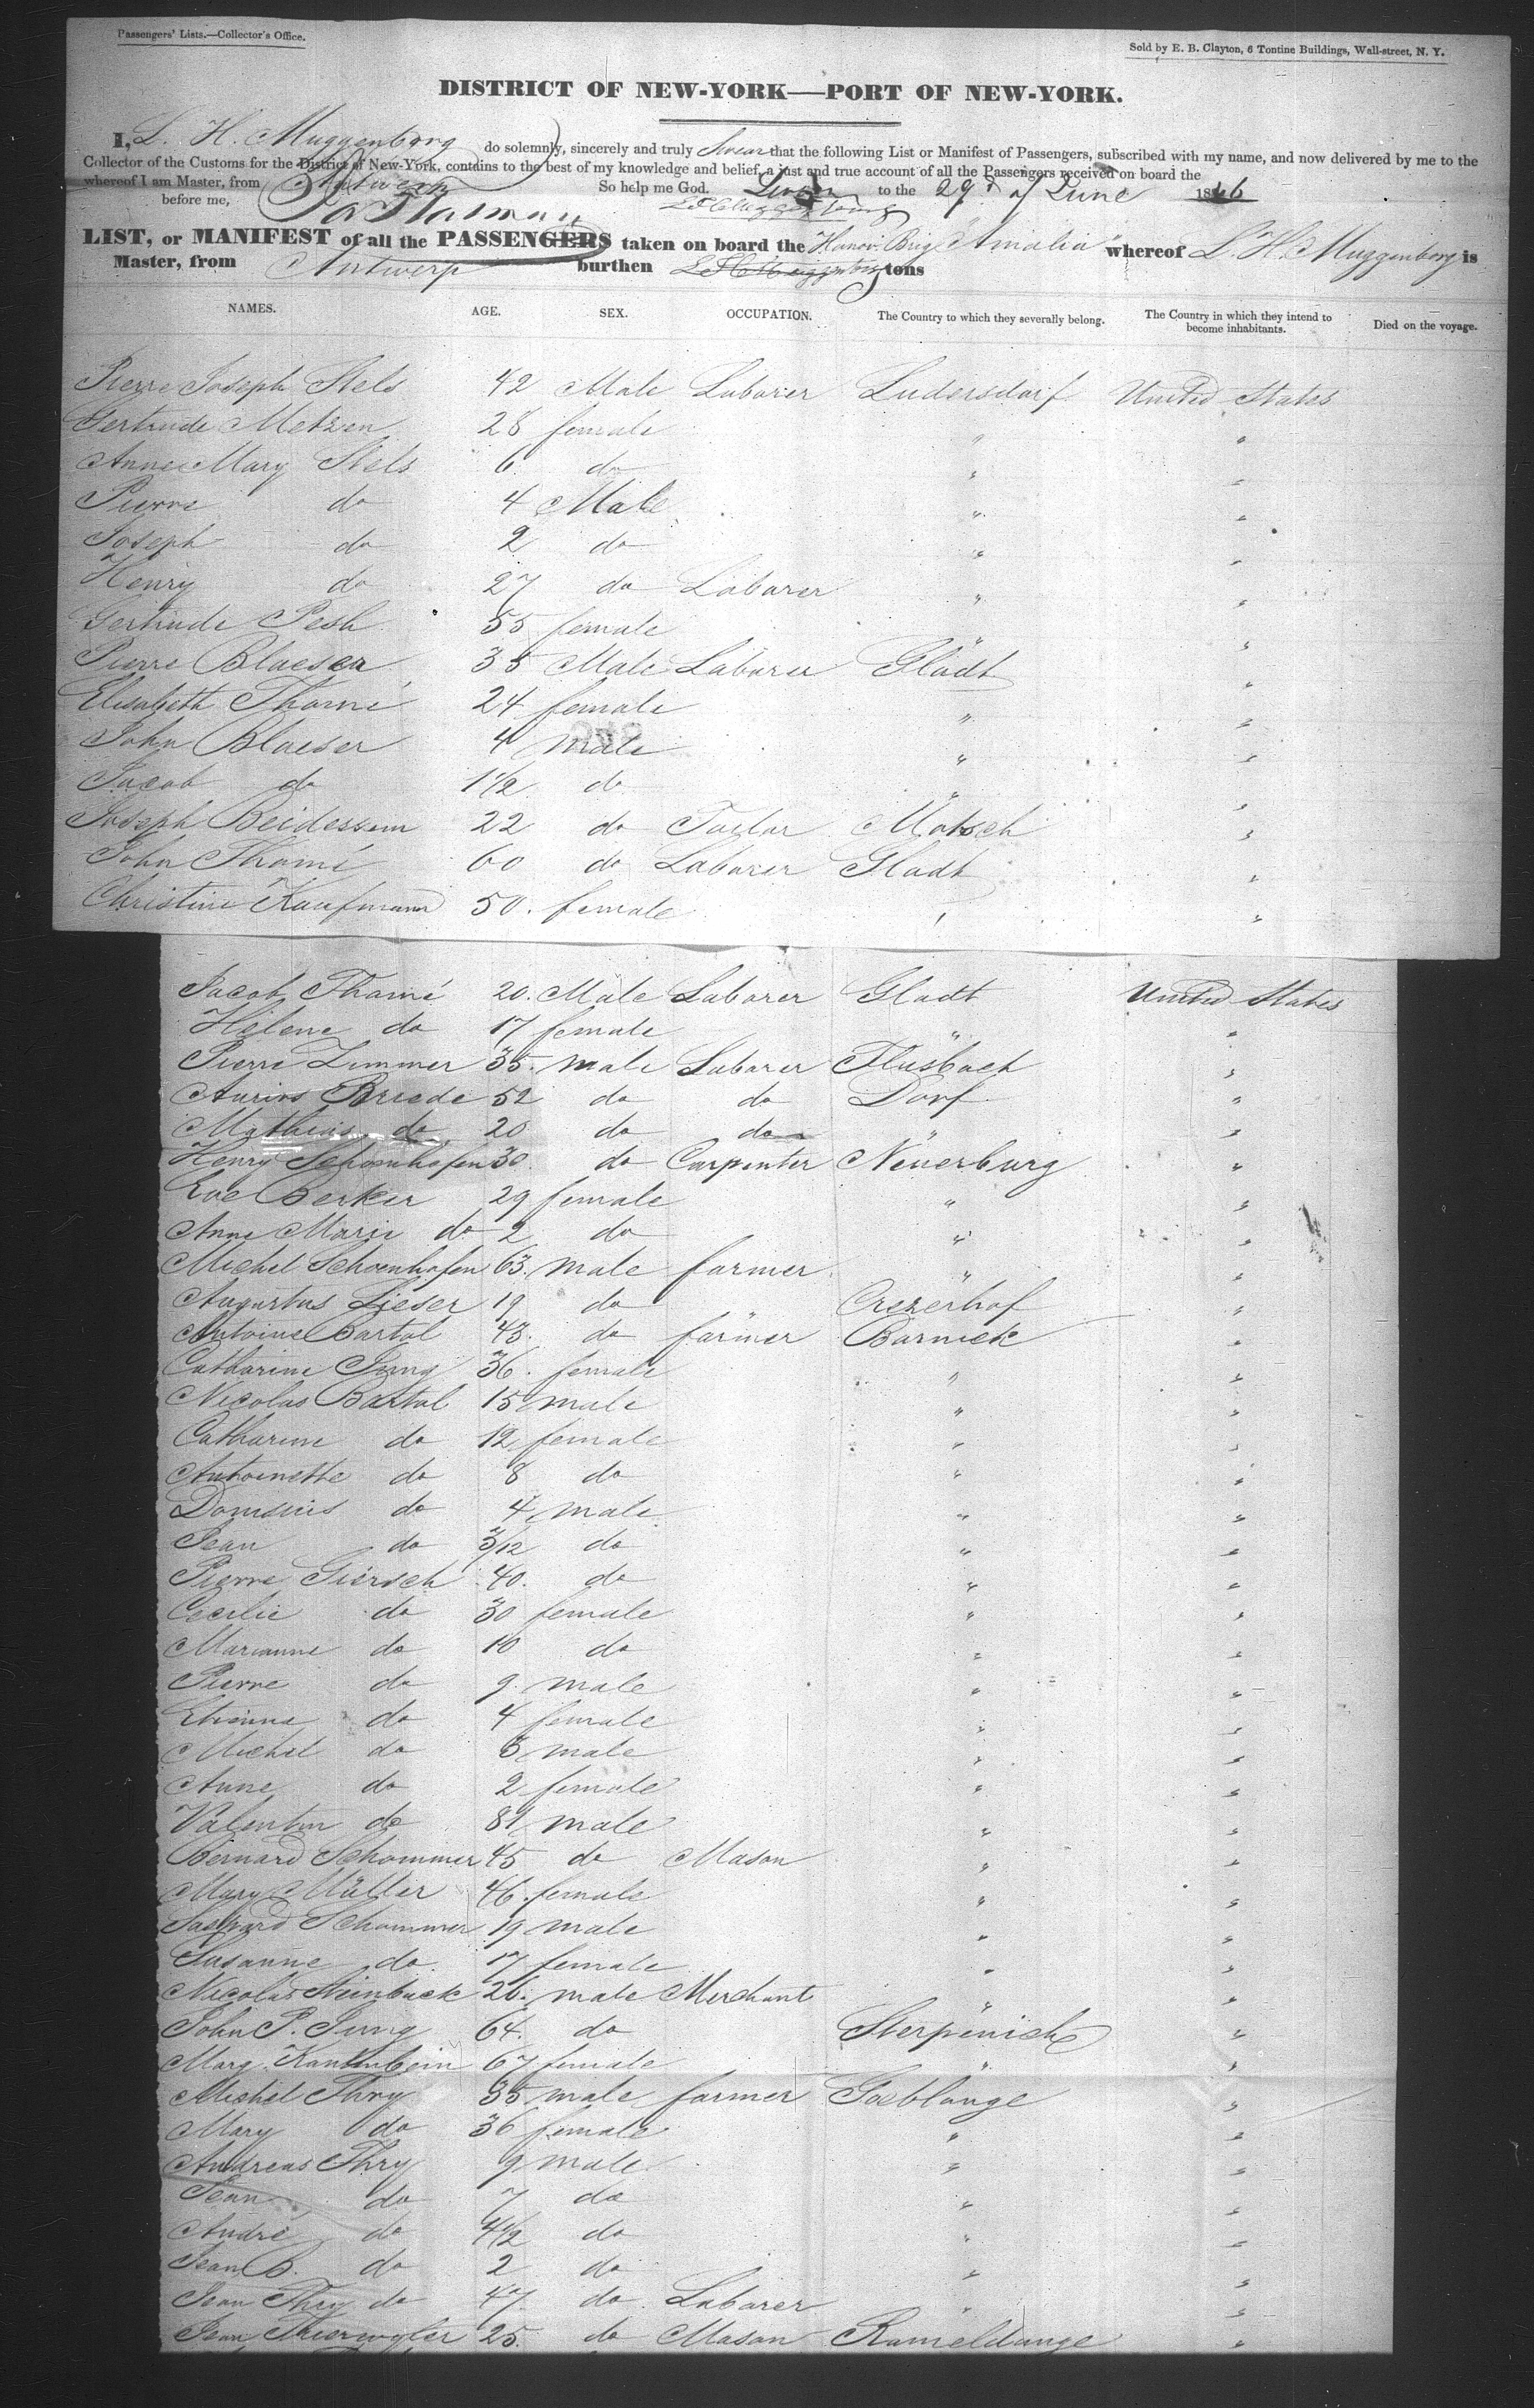 Passengers' Lists.—Collector's Office.
Sold by E. B. Clayton, 6 Tontine Buildings, Wall-street, N. Y.
DISTRICT OF NEW-YORK—PORT OF NEW-YORK.
I, L. H. Muggenborg do solemnly, sincerely and truly swear that the following List or Manifest of Passengers, subscribed with my name, and now delivered by me to the
Collector of the Customs for the District of New-York, contains to the best of my knowledge and belief, a just and true account of all the Passengers received on board the
whereof I am Master, from Antwerp So help me God. Sworn to the 29th of June 1846
before me,
LIST, or MANIFEST of all the PASSENGERS taken on board the Hanov. Brig Amalia whereof L. H. Muggenborg is
Master, from Antwerp burthen tons
NAMES. AGE. SEX. OCCUPATION. The Country to which they severally belong. The Country in which they intend to become inhabitants. Died on the voyage.
Pierre Joseph Stels 42 Male Laborer Ludersdorf United States
Gertrude Metzen 28 female " "
Anne Mary Stels 6 do " "
Pierre do 4 Male " "
Joseph do 2 do " "
Henry do 27 do Laborer " "
Gertrude Pesh 55 female " "
Pierre Blaeser 35 Male Laborer Gladt "
Elisabeth Thomé 24 female " "
John Blaeser 4 male " "
Jacob do 1 1/2 do " "
Joseph Beidessem 22 do Tailor Motsch "
John Thomé 60 do Laborer Gladt "
Christine Kaufmann 50. female " "
Jacob Thomé 20. Male Laborer Gladt United States
Helene do 17 female " "
Pierre Zimmer 35. male Laborer Flusbach "
52 do do Dorf "
Mathias do 20 do do " "
Henry Schoenhofen 30. do Carpenter Neuerburg "
Eve Berker 29 female " "
Anne Marie do 2 do " "
Michel Schoenhofen 63. male farmer " "
Augustus Lieser 19 do " Crezerhof "
Antoine Bartol 43. do farmer Barnick "
Catharine Jung 36. female " "
Nicolas Bartol 15 male " "
Catharine do 12 female " "
Antoinette do 8 do " "
do 4 male " "
Jean do 3/12 do " "
Pierre Giersch 40. do " "
Cecilie do 30 female " "
Marianne do 10 do " "
Pierre do 9 male " "
Etienne do 4 female " "
Michel do 3 male " "
Anne do 2 female " "
Valentin do 81 male " "
Bernard Schommer 45 do Mason " "
Mary Müller 46. female " "
Gaspard Schommer 19 male " "
Susanne do. 17 female " "
Nicolas Steinbuck 26. male Merchant " "
John P. Jung 64. do Sterpenich "
Marg. Kantenbein 67 female " "
Michel Thry 35 male farmer Goeblange "
Mary do 36 female " "
Andreas Thry 9 male " "
Jean do 7 do " "
André do 4 1/2 do " "
Jean B. do 2 do " "
Jean Thry do 47. do. Laborer " "
Jean 25. do Mason Rameldange "